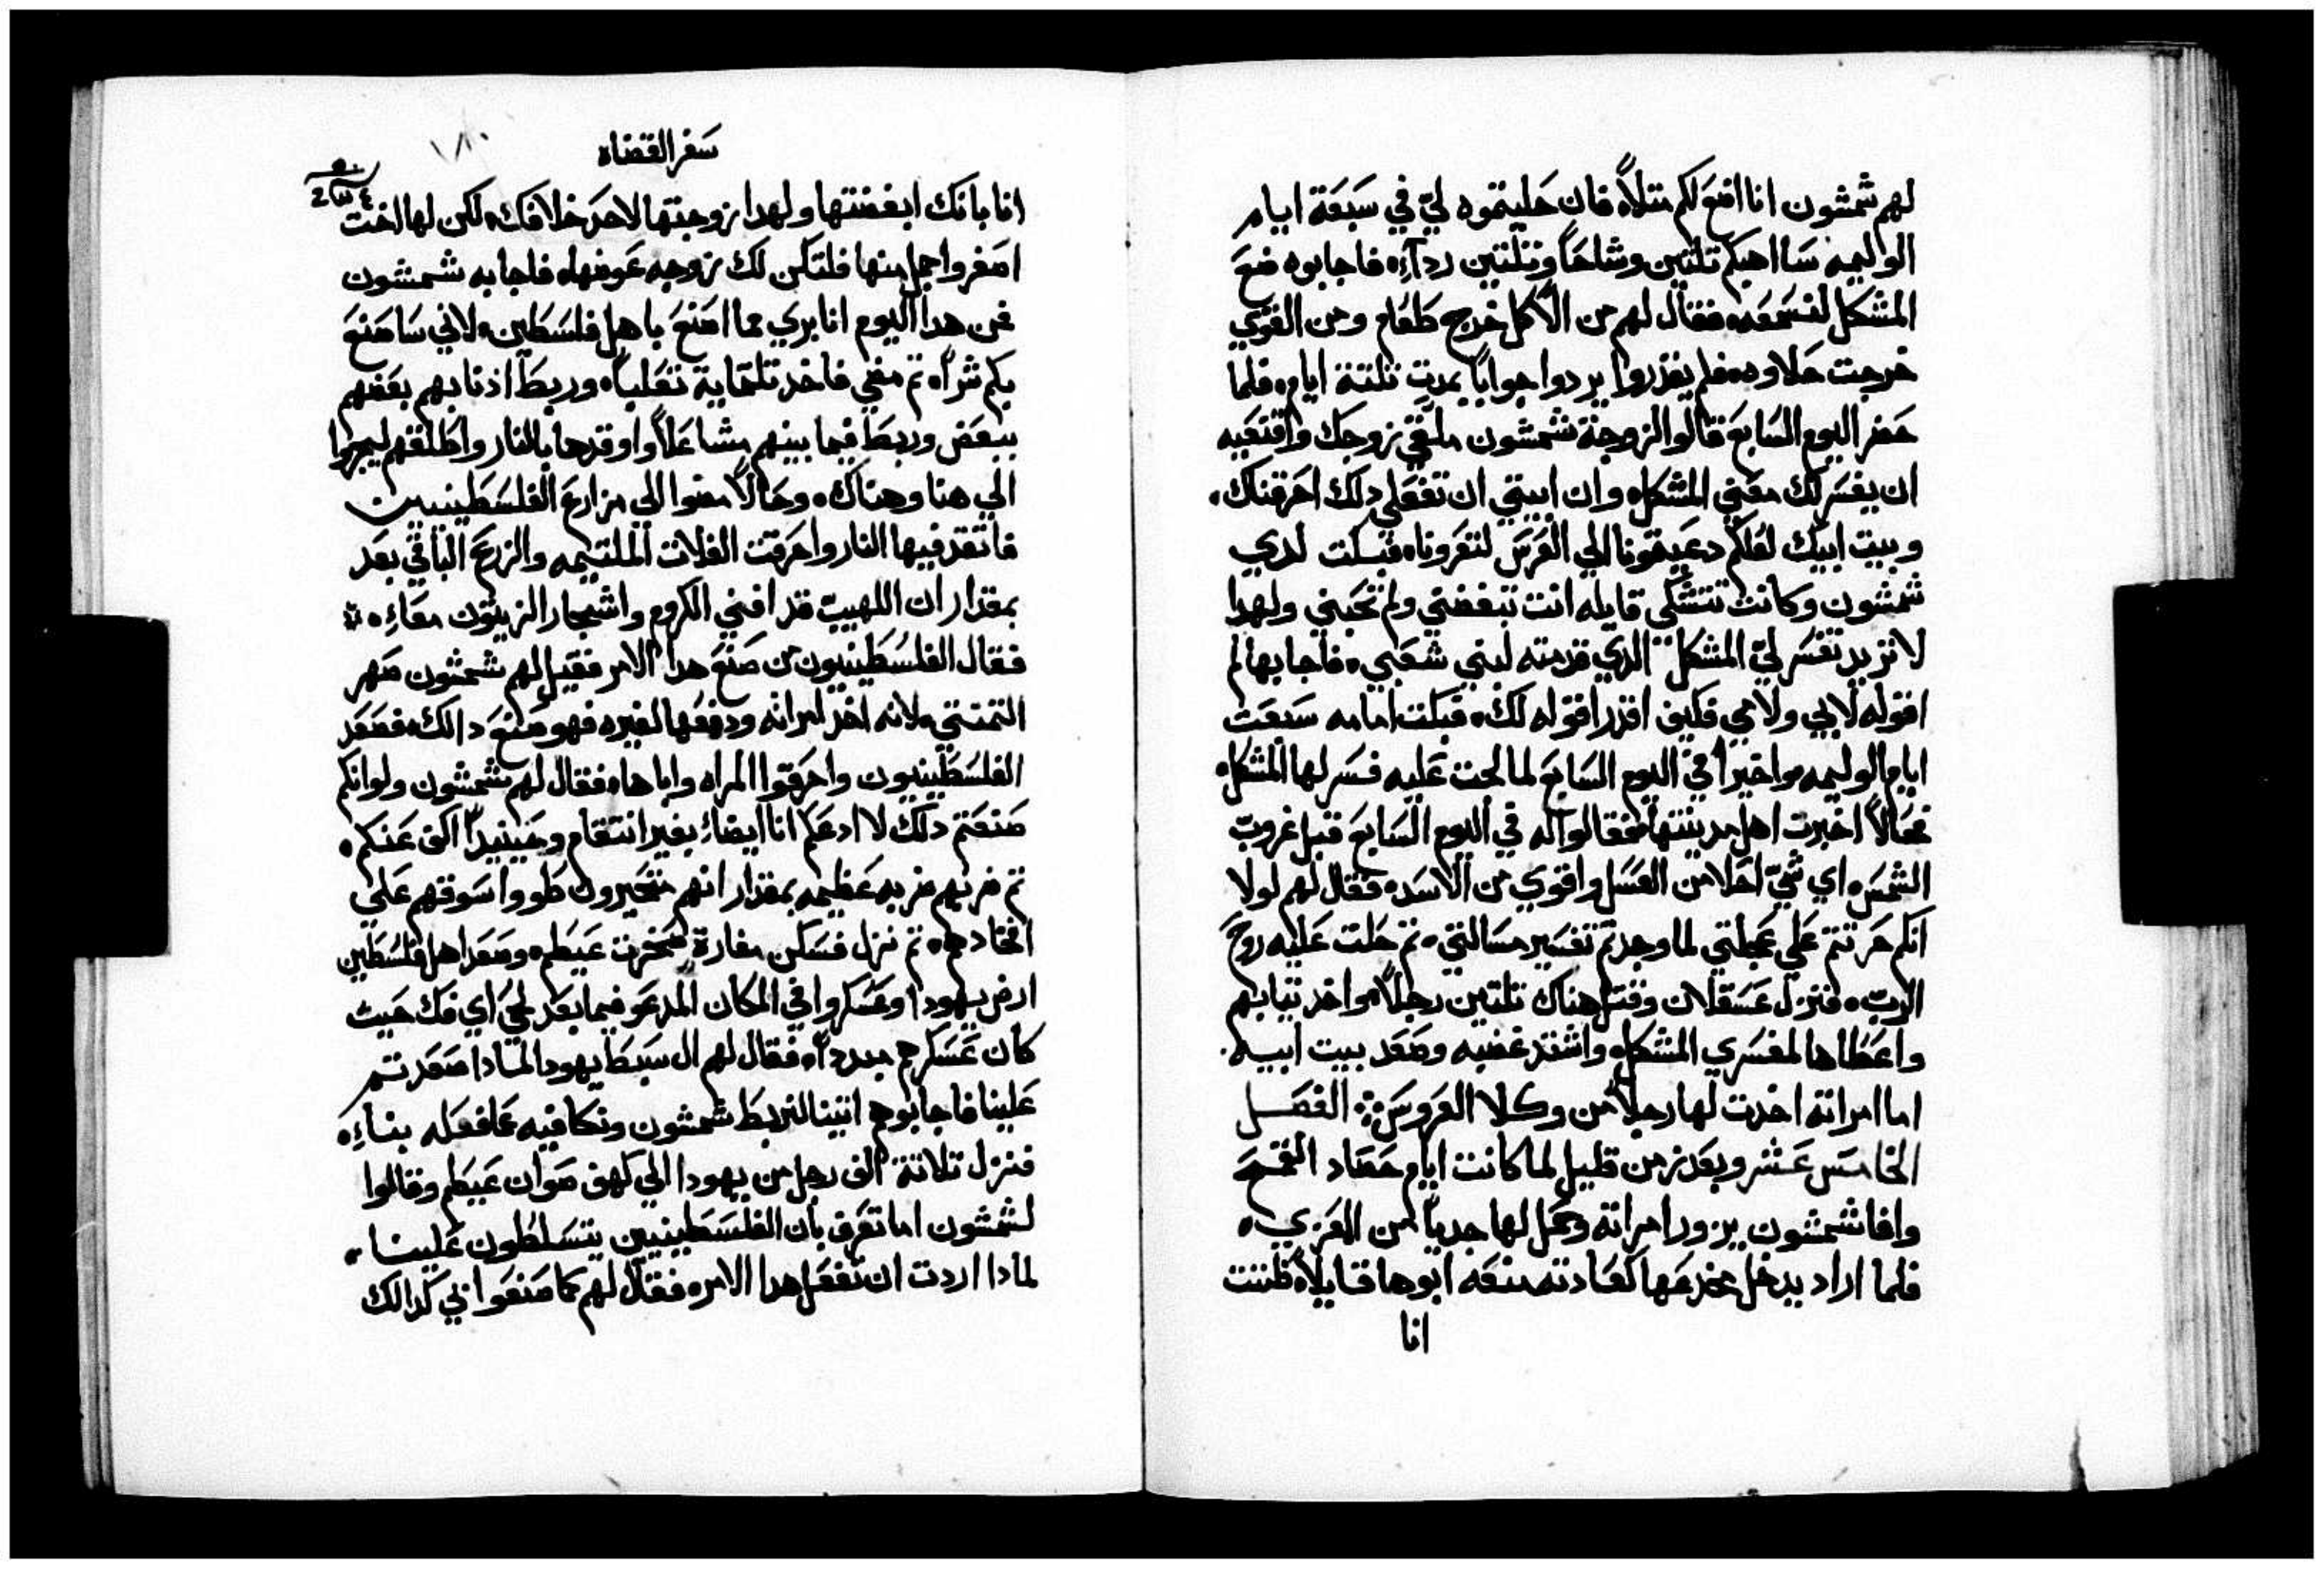 لهم شمشون انا اضع لكم متلاً فان حليتموه لي في سبعة ايام
الوليمه سااهبكم تلتين وشاحاً وتلتين ردآء فاجابوه ضع
المشكل لنسمعه فقال لهم من الأكل خرج طعام ومن القوي
خرجت حلاوه فلم يقدروا يردوا جواباً بمدت تلتة ايام فلما
حضر اليوم السابع قالوا لزوجة شمشون ملقي زوجك واقنعيه
ان يفسر لك معني المشكل وان ابيتي ان تفعلي دلك احرقناك
وبيت ابيك لعلكم دعيتمونا الي العرس لتعرونا فبكت لدي
شمشون وكانت تتشكى قايله انت تبغضني ولم تحبني ولهدا
لا تريد تفسر لي المشكل الدي قدمته لبني شعبي فاجابها لم
اقوله لابي ولامي فكيف اقدر اقوله لك فبكت امامه سبعت
ايام الوليمه واخيراً في اليوم السابع لما لحت عليه فسر لها المشكل
فحالاً اخبرت اهل مدينتها فقالوا له في اليوم السابع قبل غروب
الشمس اي شي احلا من العسل واقوي من الاسد فقال لهم لولا
انكم حرتتم علي عجلتي لما وجدتم تفسير مسالتي تم حلت عليه روح
الرب فنزل عسقلان وقتل هناك تلتين رجلاً واخد تيابهم
واعطاها لمفسري المشكل واشتد غضبه وصعد بيت ابيه
اما امراته اخدت لها رجلاً من وكلا العروس الفصل
الخامس عشر وبعد زمن قليل لما كانت ايام حصاد القمح
وافا شمشون يزور امراته وحمل لها جدياً من المعزي
فلما اراد يدخل مخدعها كعادته منعه ابوها قايلاً ظننت
انا
سفر القضاه
١٨٠
انا بانك ابغضتها ولهدا زوجتها لاحد خلافك لكن لها اخت
اصغر واجمل منها فلتكن لك زوجه عوضها فاجابه شمشون
من هدا اليوم انا بري مما اصنع باهل فلسطين لاني ساصنع
بكم شراً تم مضي فاخد تلتماية تعلباً وربط ادنابهم بعضهم
ببعض وربط فيما بينهم مشاعلاً واوقدها بالنار واطلقهم ليجروا
الي هنا وهناك وحالاً مضوا الي مزارع الفلسطينيين
فاتقد فيها النار واحرقت الغلات الملتيمه والزرع الباقي بعد
بمقدار ان اللهيب قد افني الكروم واشجار الزيتون معاً
فقال الفلسطينيون من صنع هدا الامر فقيل لهم شمشون صهر
التمنتي لانه اخد امراته ودفعها لغيره فهو صنع دالك فصعد
الفلسطينيون واحرقوا المراه واباها فقال لهم شمشون ولو انكم
صنعتم دلك لا ادعكم انا ايضاً بغير انتقام وحينيداً اكف عنكم
تم ضربهم ضربه عظيمه بمقدار انهم متحيرون طووا اسوقهم علي
افخادهم تم نزل فسكن مغارة صخرت عيطم وصعد اهل فلسطين
ارض يهودا وعسكروا في المكان المدعو فيما بعد لحي اي فك حيث
كان عسكرهم مبدداً فقال لهم ال سبط يهودا لمادا صعدتم
علينا فاجابوهم اتينا لنربط شمشون ونكافيه عما فعله بنا
فنزل تلاتة الف رجل من يهودا الي كهف صوان عيطم وقالوا
لشمشون اما تعرف بان الفلسطينيين يتسلطون علينا
لمادا اردت ان تفعل هدا الامر فقال لهم كما صنعوا بي كدالك